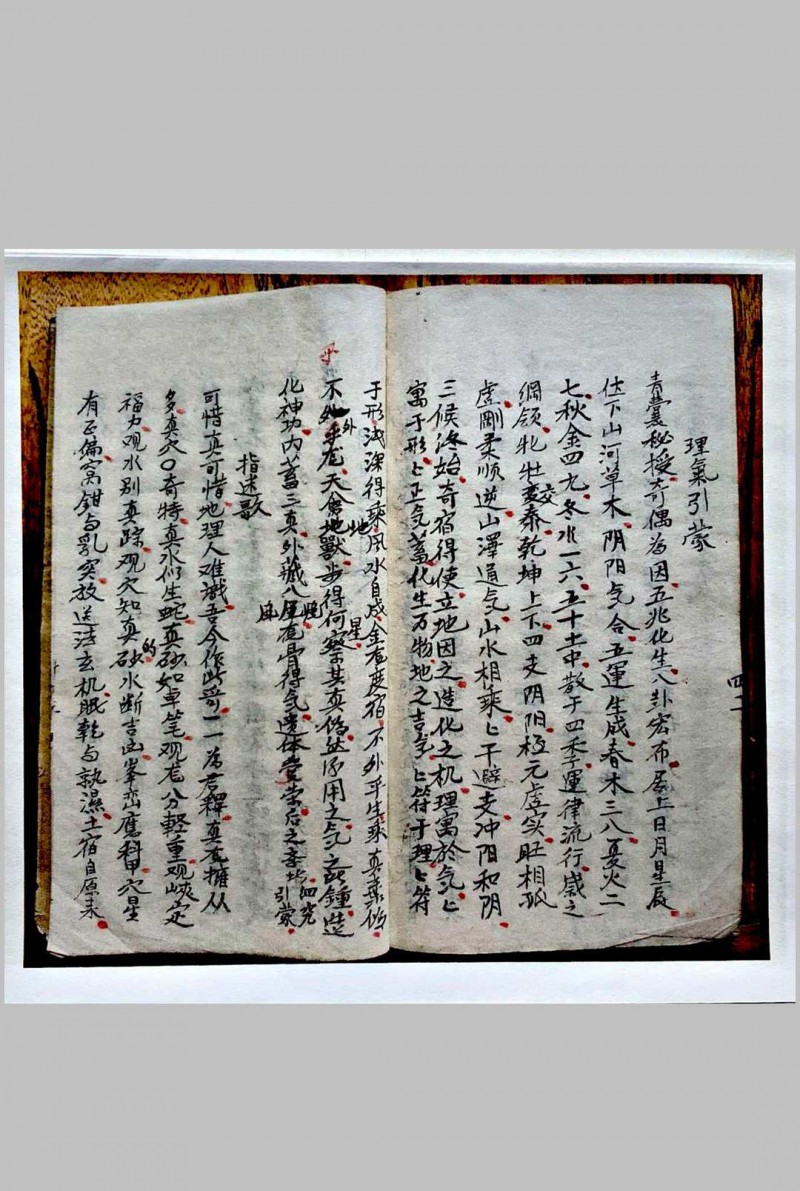 理氣引蒙
青囊秘授奇偶為因五兆化生八卦宏布居上日月星辰
位下山河草木阴阳气合五運生成春木三八夏火二
七秋金四九冬水一六五十土中散于四季運律流行歲之
綱领牝牡交泰乾坤上下四支阴阳極元虚实旺相孤
虚剛柔順逆山澤通气山水相乘上干避支冲阳和阴
三候终始奇宿得使立地因之造化之机理寓於气上
寓于形上正气蓄化生万物地之吉气上符于理上符
于形浅深得乘風水自成金度宿不外乎生乘真乘伪
不外乎龙天禽地獸步得何察其真伪然所用之气鍾造
化神功内蓄三真外藏八骨得气遗体受荣后之
细究
引蒙
指迷歌
可惜真可惜地理人难識吾今作此歌一一為君釋真龙擁从
多真穴奇特真水们生蛇真砂如卓笔观龙分輕重观峡定
福力观水别真踪观穴知真的砂水断吉凶峯峦應科甲穴星
有正偏窝鉗与乳突放送法玄机眠乾与孰濕土宿自原来